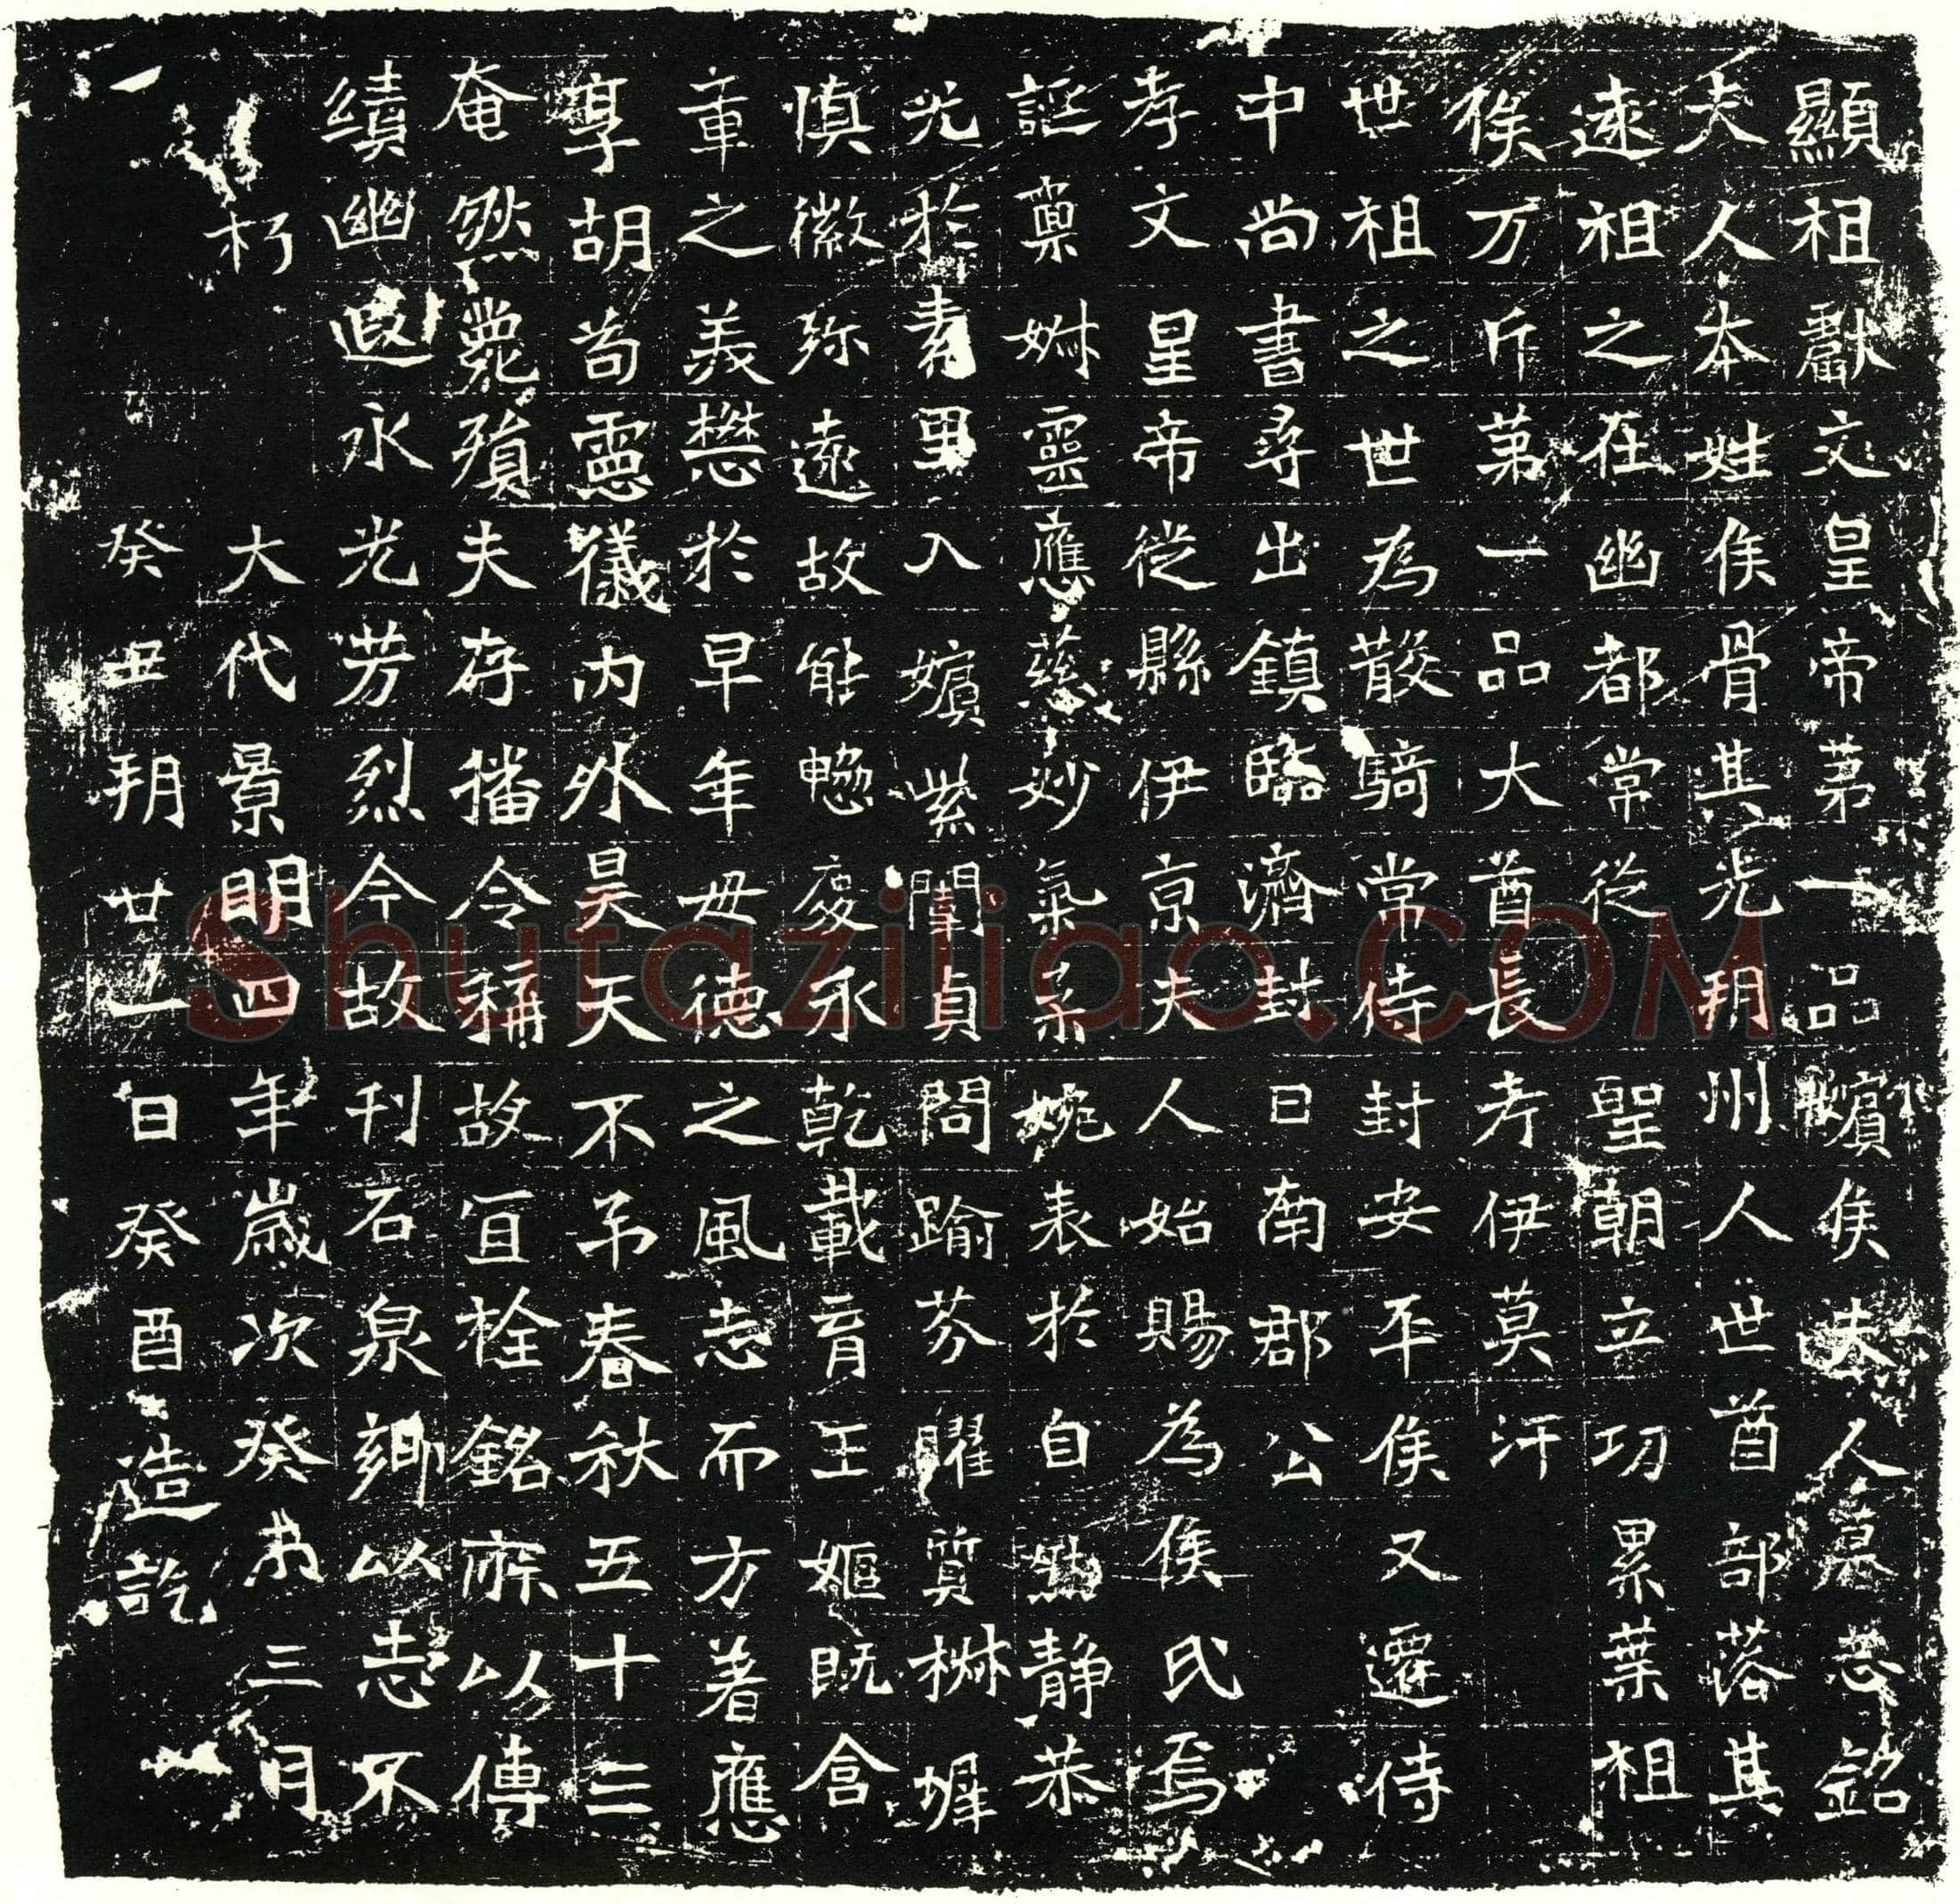 顯祖獻文皇帝第一品嬪侯夫人墓志銘
夫人本姓侯骨其先朔州人世酋部落其
遠祖之在幽都常從聖朝立功累葉祖
侯万斤第一品大酋長考伊莫汗
世祖之世為散騎常侍封安平侯又遷侍
中尚書尋出鎮臨濟封曰南郡公
孝文皇帝從縣伊京夫人始賜為侯氏焉
誕稟姉靈應慈妙氣柔婉表於自然静恭
光於素里入嬪紫闈貞問踰芬曜質椒墀
慎徽弥遠故能愍慶永乾載育王姬既含
章之美懋於早年母德之風志而方著應
享胡苟霊儀内外昊天不弔春秋五十三
奄然薨殞夫存播令稱故宜栓銘庥以傳
績幽遐永光芳烈今故刊石泉鄉以志不
朽大代景明四年歲次癸未三月
癸丑朔廿一日癸酉造訖
Shufaziliao.COM